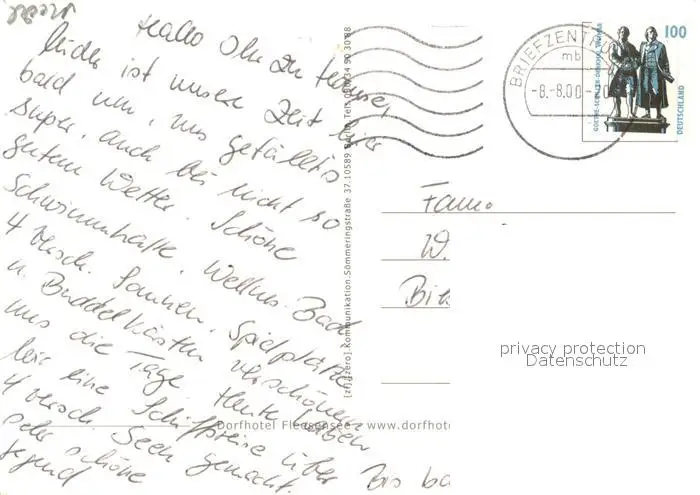 Hallo Ihr zu Hause,
leider ist unsere Zeit hier
bald um, uns gefällt's
super, auch bei nicht so
gutem Wetter. Schöne
Schwimmhalle, Wellness-Bad
4 versch. Saunen, Spielplätze
u. Buddelkästen verschönern
uns die Tage. Heute haben
wir eine Schiffsreise über
4 versch. Seen gemacht.
sehr schöne
Gegend
Bis ba
[zf.[zero].Kommunikation.Sömmeringstraße 37.10589 Berlin Tel. 030 34 50 30 88
Dorfhotel Fleesensee www.dorfhote
BRIEFZENTRUM
mb
-8.-8.00
100
GOETHE-SCHILLER-DENKMAL WEIMAR
DEUTSCHLAND
Fam.
W.
privacy protection
Datenschutz